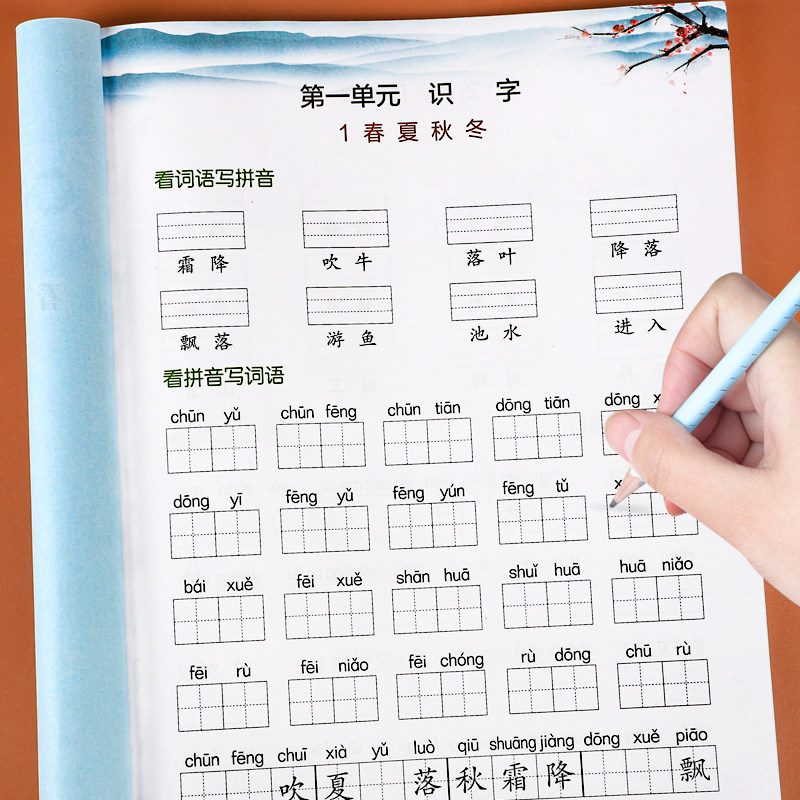 第一单元 识 字
1 春 夏 秋 冬
看词语写拼音
霜 降 吹 牛 落 叶 降 落
飘 落 游 鱼 池 水 进 入
看拼音写词语
chūn yǔ chūn fēng chūn tiān dōng tiān dōng
dōng yī fēng yǔ fēng yún fēng tǔ
bái xuě fēi xuě shān huā shuǐ huā huā niǎo
fēi rù fēi niǎo fēi chóng rù dōng chū rù
chūn fēng chuī xià yǔ luò qiū shuāng jiàng dōng xuě piāo
吹 夏 落 秋 霜 降 飘